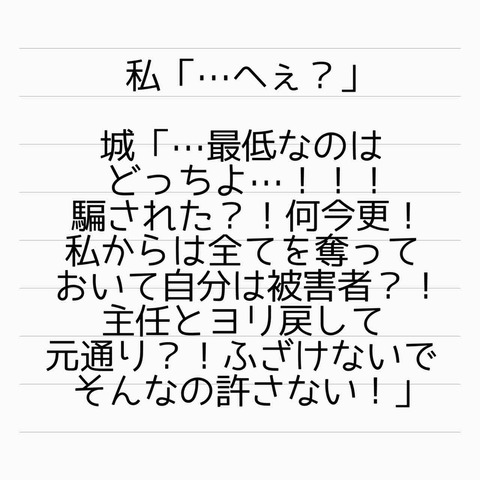 私「…へぇ？」
城「…最低なのは
どっちよ…！！！
騙された？！何今更！
私からは全てを奪って
おいて自分は被害者？！
主任とヨリ戻して
元通り？！ふざけないで
そんなの許さない！」